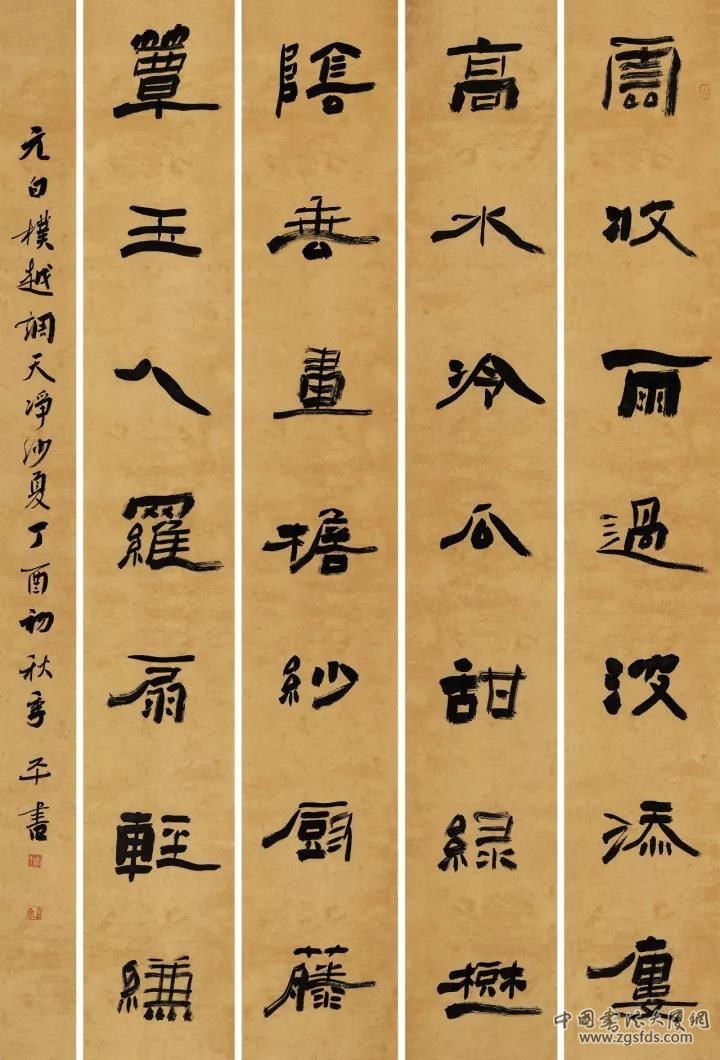 雲收雨過波添廔
高水冷瓜甜綠樹
陰垂畫檐紗厨藤
簟玉人羅扇輕縑
元白樸越調天凈沙夏丁酉初秋季平書
中國書法大厦網
www.zgsfds.com